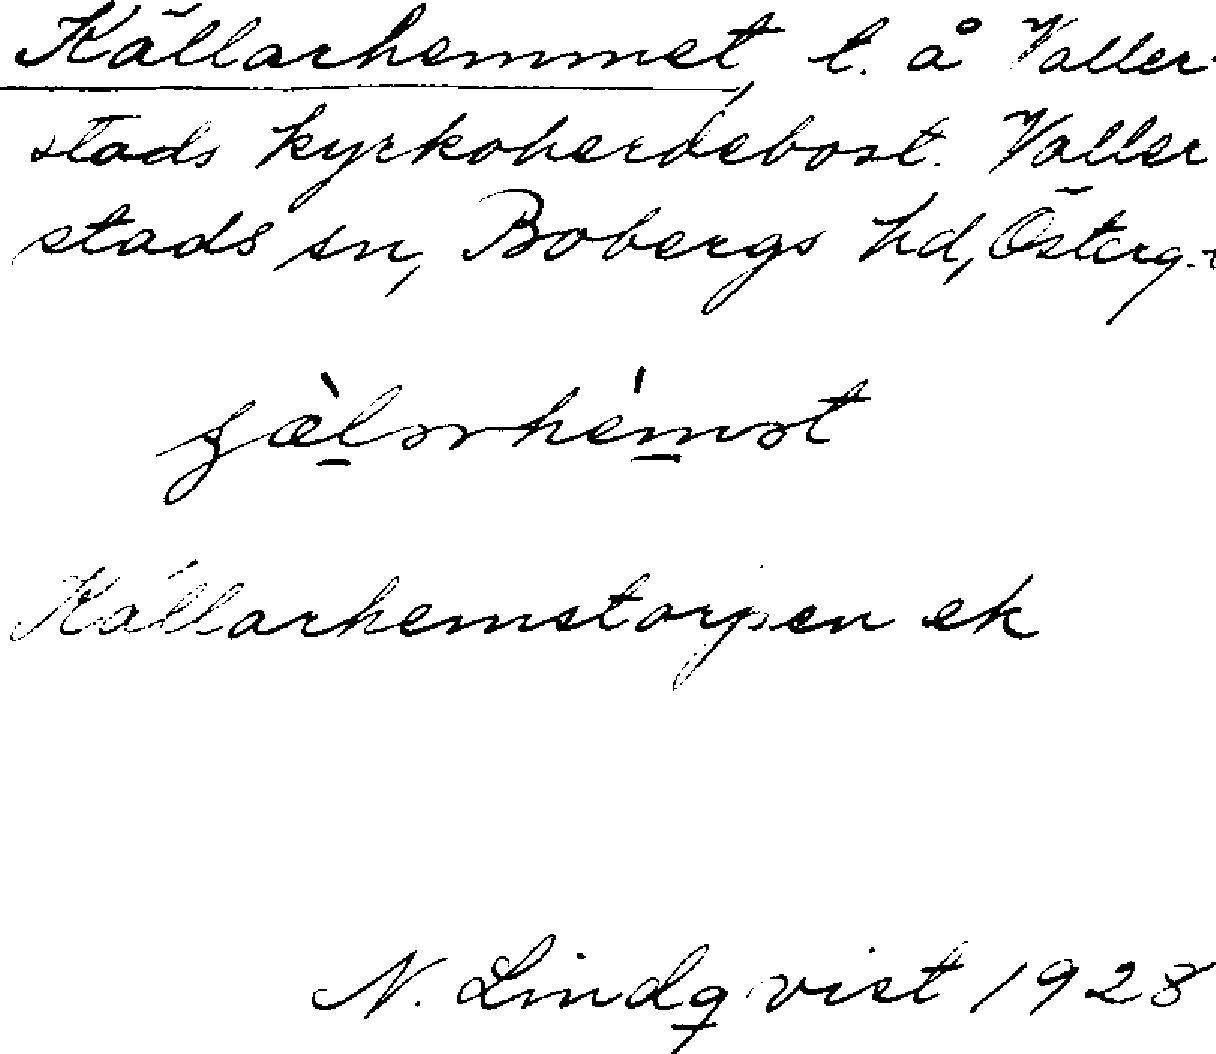 Källarhemmet, l. å Valler-
stads kyrkoherdebost. Valler
stads sn, Bobergs hd, Österg.
Källarhemstorpen ek
N. Lindqvist 1928